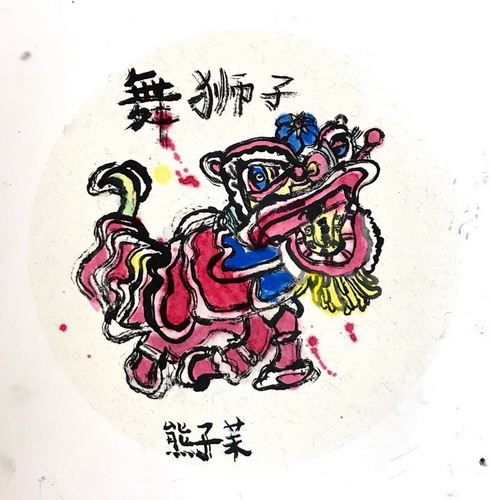 舞狮子
熊子茉